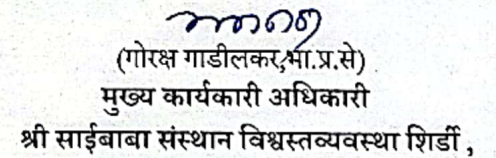 (गोरक्ष गाडीलकर,भा.प्र.से)
मुख्य कार्यकारी अधिकारी
श्री साईबाबा संस्थान विश्वस्तव्यवस्था शिर्डी ,